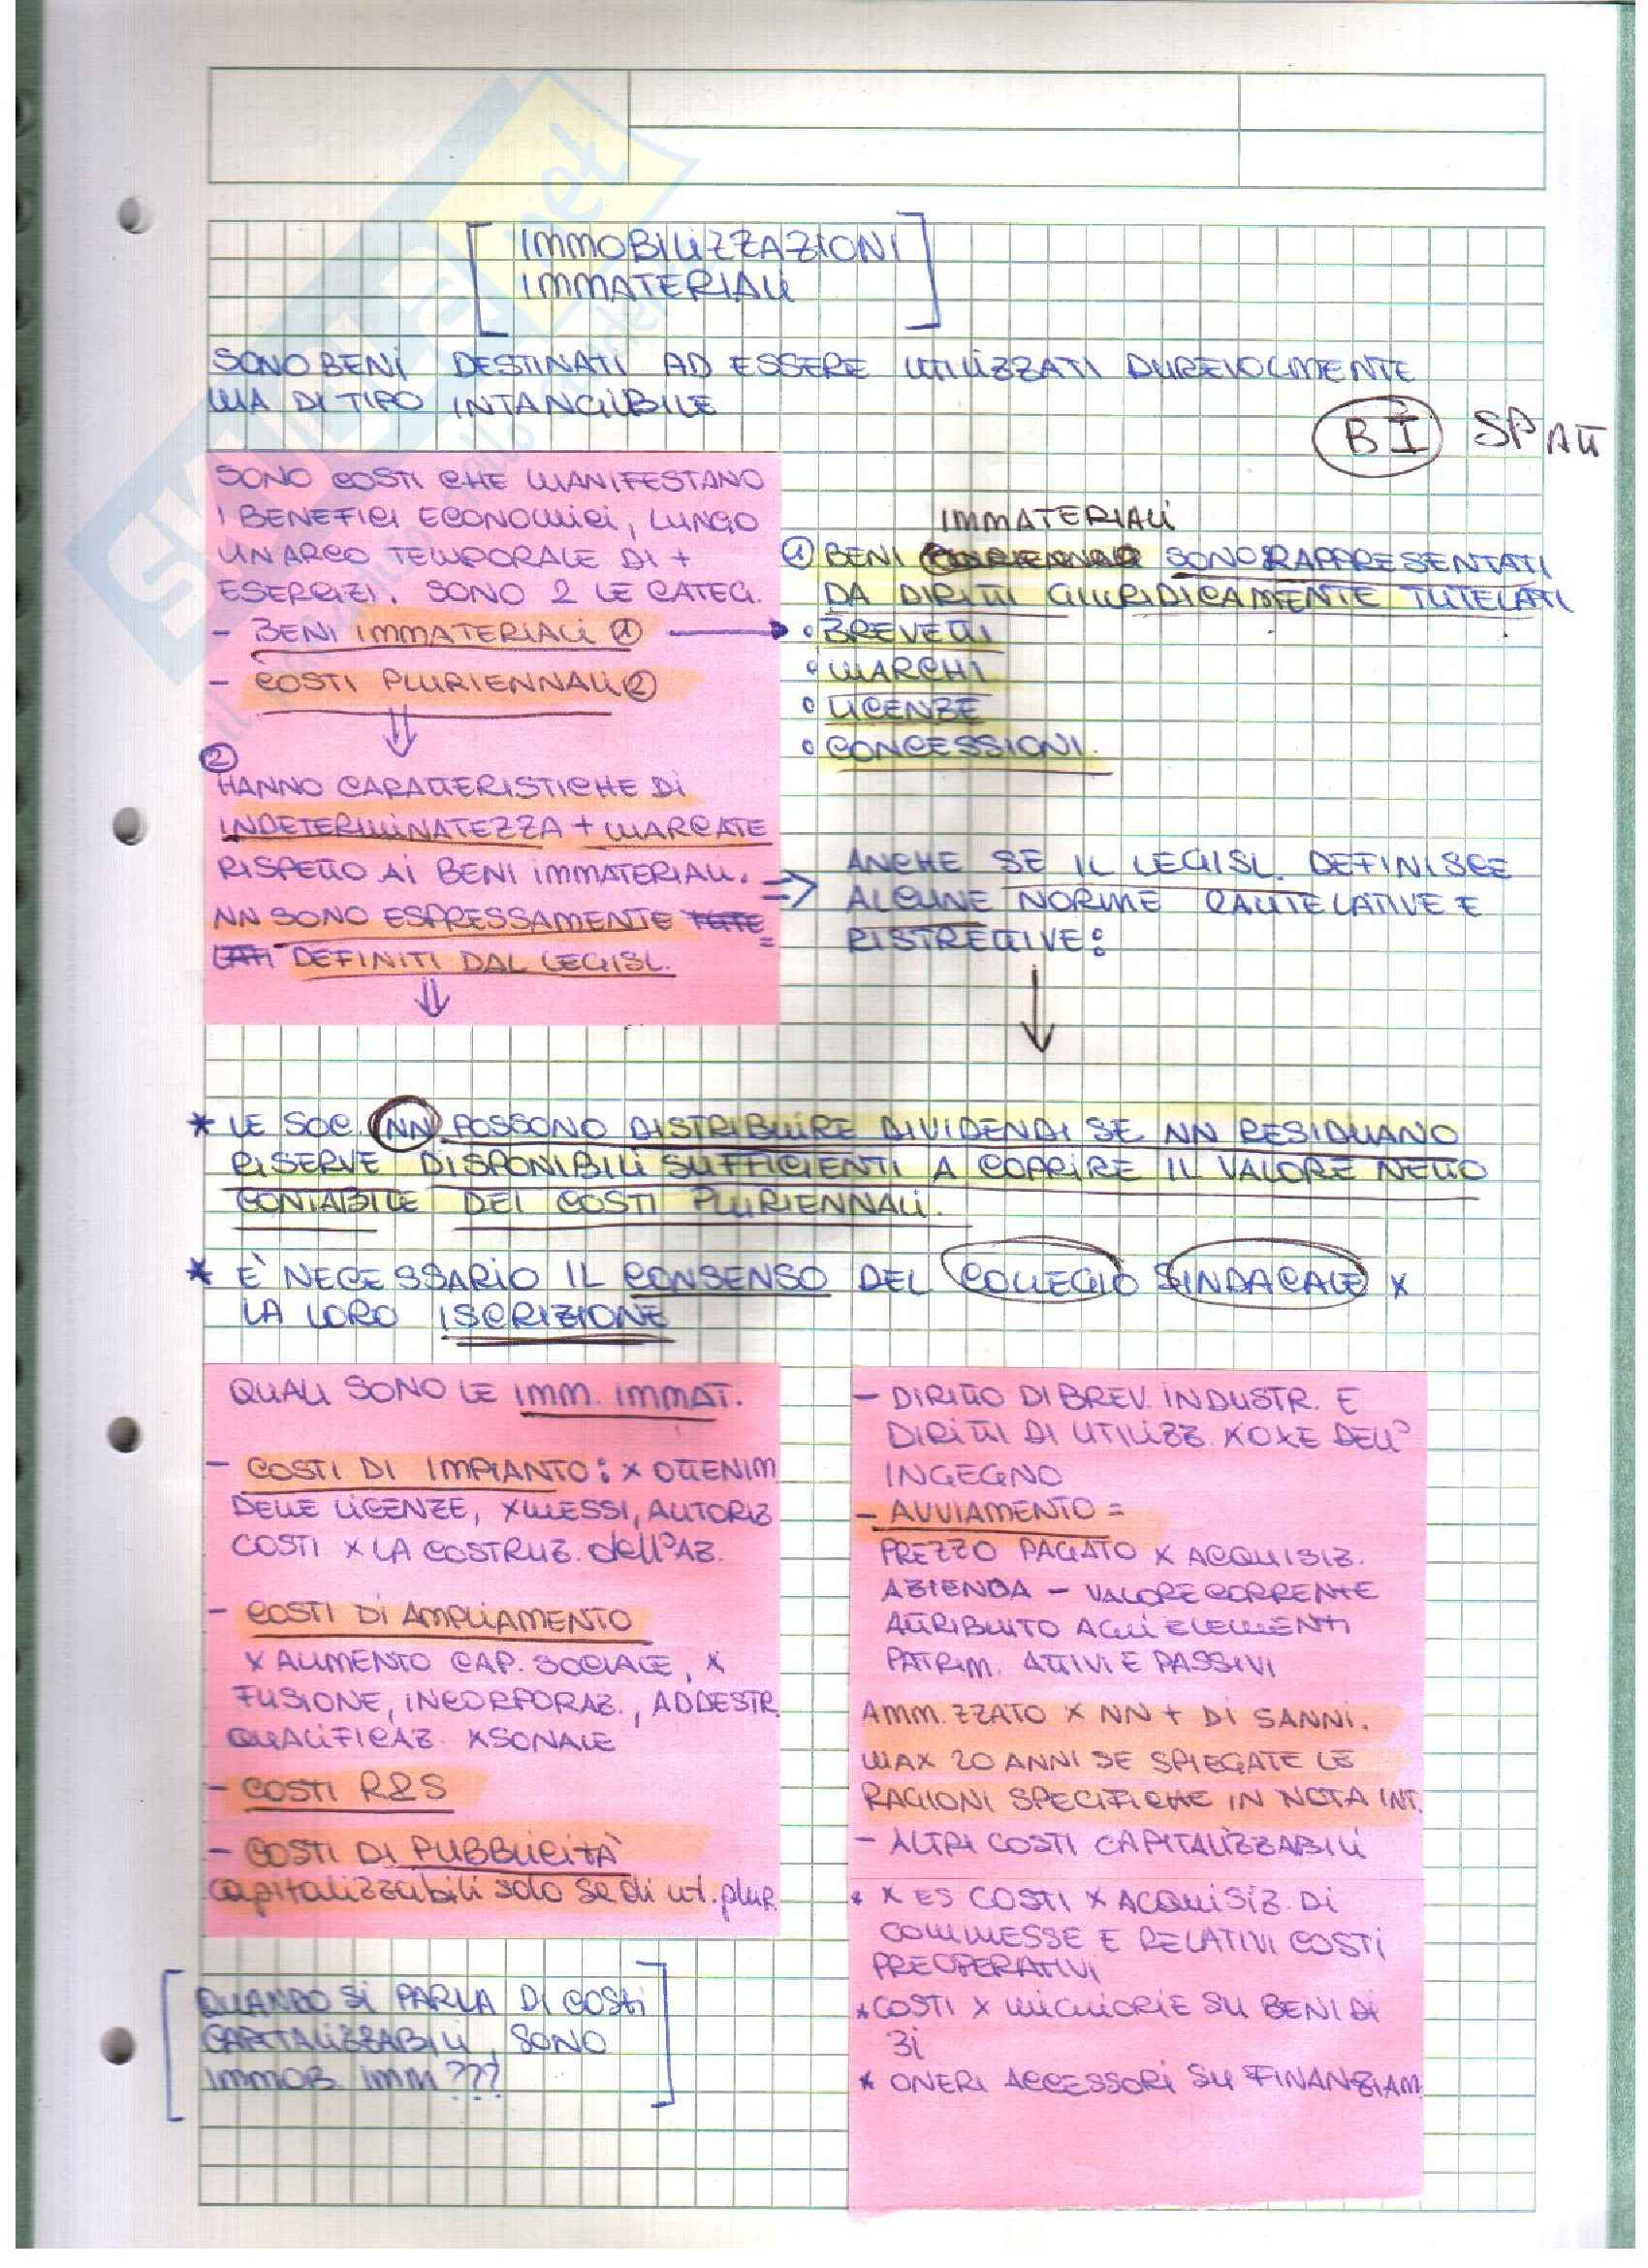 [IMMOBILIZZAZIONI
IMMATERIALI]
SONO BENI DESTINATI AD ESSERE UTILIZZATI DUREVOLMENTE
MA DI TIPO INTANGIBILE
BI SP ATT
SONO COSTI CHE MANIFESTANO
I BENEFICI ECONOMICI, LUNGO
UN ARCO TEMPORALE DI +
ESERCIZI. SONO 2 LE CATEG.
- BENI IMMATERIALI ①
- COSTI PLURIENNALI ②
IMMATERIALI
① BENI SONO RAPPRESENTATI
DA DIRITTI GIURIDICAMENTE TUTELATI
° BREVETTI
° MARCHI
° LICENZE
° CONCESSIONI.
②
HANNO CARATTERISTICHE DI
INDETERMINATEZZA + MARCATE
RISPETTO AI BENI IMMATERIALI.
NN SONO ESPRESSAMENTE TUTE=
LATI DEFINITI DAL LEGISL.
=> ANCHE SE IL LEGISL. DEFINISCE
ALCUNE NORME CAUTELATIVE E
RISTRETTIVE:
* LE SOC. NN POSSONO DISTRIBUIRE DIVIDENDI SE NN RESIDUANO
RISERVE DISPONIBILI SUFFICIENTI A COPRIRE IL VALORE NETTO
CONTABILE DEI COSTI PLURIENNALI.
* È NECESSARIO IL CONSENSO DEL COLLEGIO SINDACALE x
LA LORO ISCRIZIONE
QUALI SONO LE IMM. IMMAT.
- COSTI DI IMPIANTO: x OTTENIM
DELLE LICENZE, xMESSI, AUTORIZ
COSTI x LA COSTRUZ. dell'AZ.
- COSTI DI AMPLIAMENTO
x AUMENTO CAP. SOCIALE, x
FUSIONE, INCORPORAZ., ADDESTR.
QUALIFICAZ. xSONALE
- COSTI R&S
- COSTI DI PUBBLICITÀ
capitalizzabili solo se di ut. plur.
[QUANDO SI PARLA DI COSTI
CAPITALIZZABILI, SONO
IMMOB. IMM???]
- DIRITTO DI BREV. INDUSTR. E
DIRITTI DI UTILIZZ. xOxE DELL'
INGEGNO
- AVVIAMENTO =
PREZZO PAGATO x ACQUISIZ.
AZIENDA - VALORE CORRENTE
ATTRIBUITO AGLI ELEMENTI
PATRIM. ATTIVI E PASSIVI
AMM.ZZATO x NN + DI 5 ANNI.
MAX 20 ANNI SE SPIEGATE LE
RAGIONI SPECIFICHE IN NOTA INT.
- ALTRI COSTI CAPITALIZZABILI
* x ES COSTI x ACQUISIZ. DI
COMMESSE E RELATIVI COSTI
PREOPERATIVI
* COSTI x MIGLIORIE SU BENI DI
3i
* ONERI ACCESSORI SU FINANZIAM